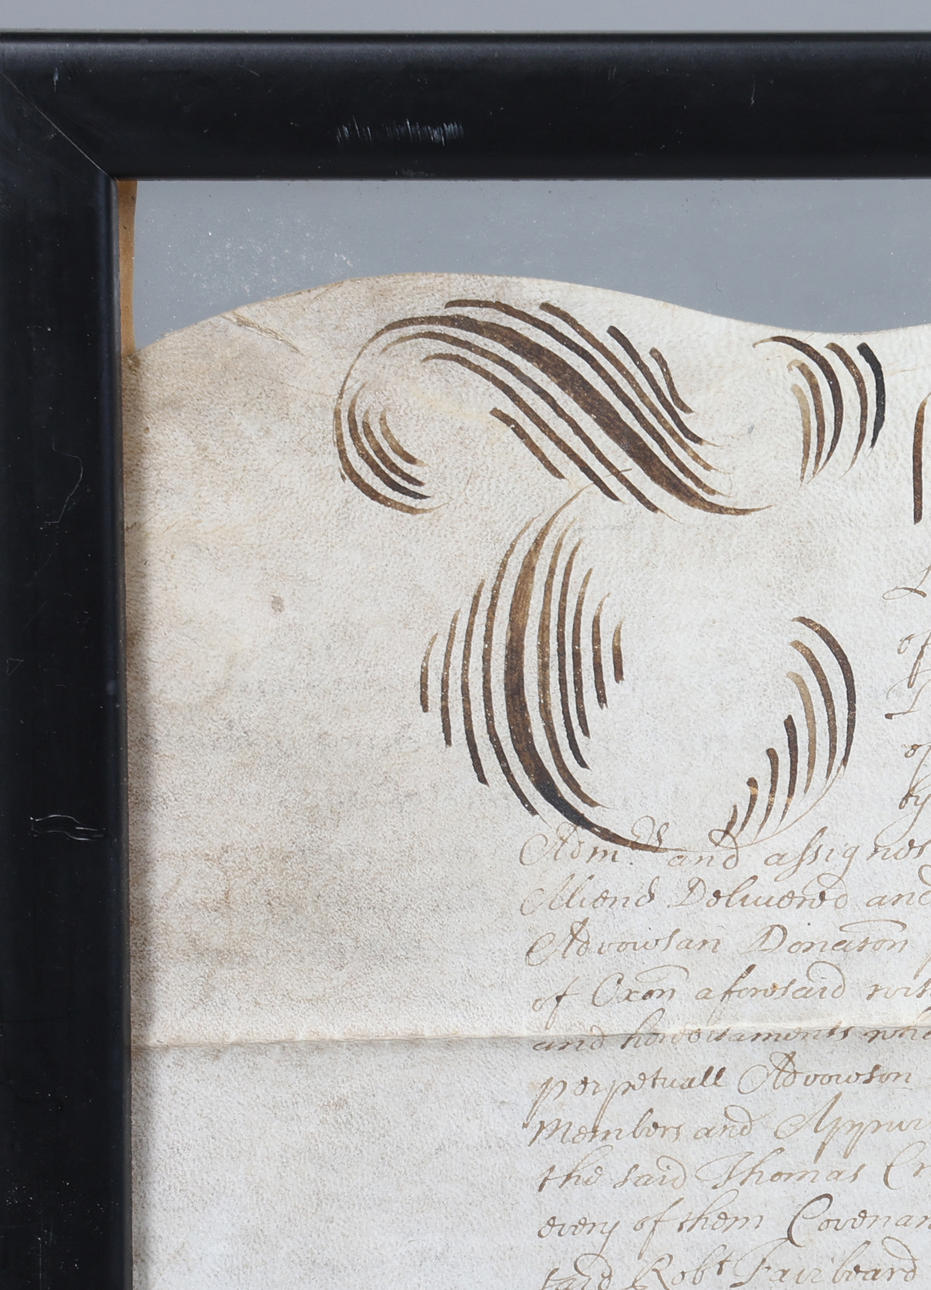 T
of
of
by
Adm.rs and assignes
Aliend Delivered and
Advowsan Donacon
of Oxon aforesaid
and hereditaments
perpetuall Advowson
Members and
the said Thomas
every of them
said Robt Fairbeard